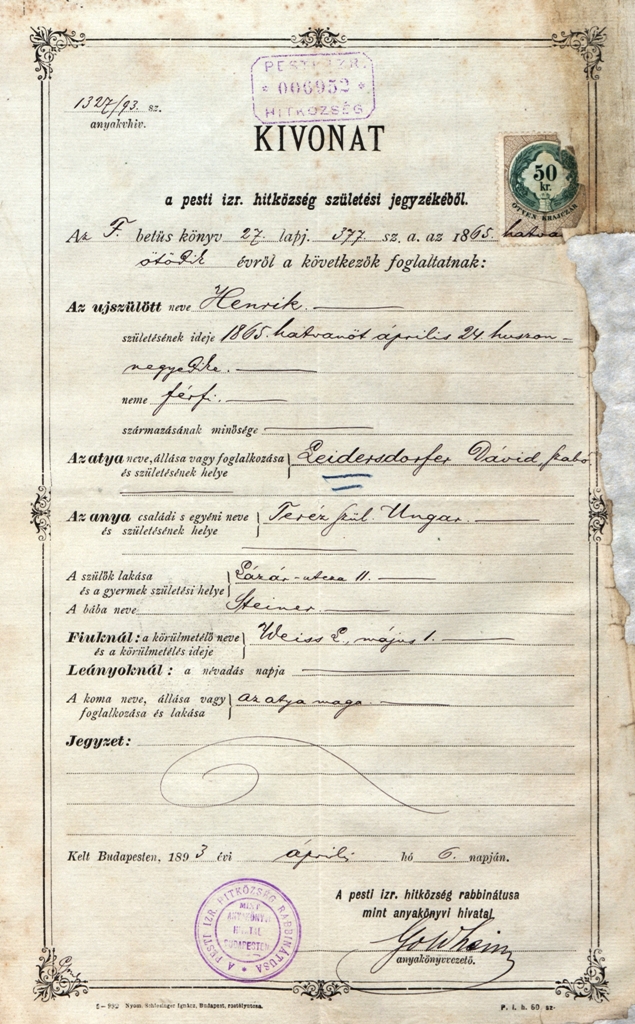 PESTI IZR.
* 006952 *
HITKÖZSÉG
1327/93. sz.
anyakvhiv.
KIVONAT
50
kr.
ÖTVEN KRAJCZÁR
a pesti izr. hitközség születési jegyzékéből.
Az F. betüs könyv 27. lapj. 377 sz. a. az 1865. hatvan
ötödik évről a következők foglaltatnak:
Az ujszülött neve Henrik.
születésének ideje 1865. hatvanöt április 24. huszon-
negyedike.
neme férfi.
származásának minősége
Az atya neve, állása vagy foglalkozása Leidersdorfer Dávid, szabó
és születésének helye
Az anya családi s egyéni neve Teréz szül. Ungar.
és születésének helye
A szülők lakása Lázár-utcza 11.
és a gyermek születési helye
A bába neve Steiner.
Fiuknál: a körülmetélő neve Weiss L., május 1.
és a körülmetélés ideje
Leányoknál: a névadás napja
A koma neve, állása vagy az atya maga.
foglalkozása és lakása
Jegyzet:
Kelt Budapesten, 1893 évi április hó 6. napján.
A pesti izr. hitközség rabbinátusa
mint anyakönyvi hivatal
Goldheim
anyakönyvvezető.
A PESTI IZR. HITKÖZSÉG RABBINÁTUSA
MINT
ANYAKÖNYVI
HIVATAL
BUDAPESTEN
Nyom. Schlesinger Ignácz, Budapest,
P. i. h. 60. sz.